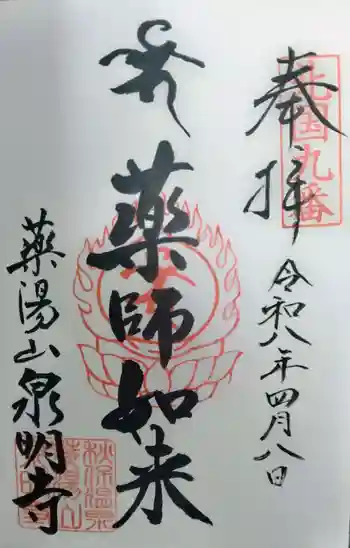 奉拝
北国九番
令和八年四月八日
薬師如来
薬湯山泉明寺
秋保温泉